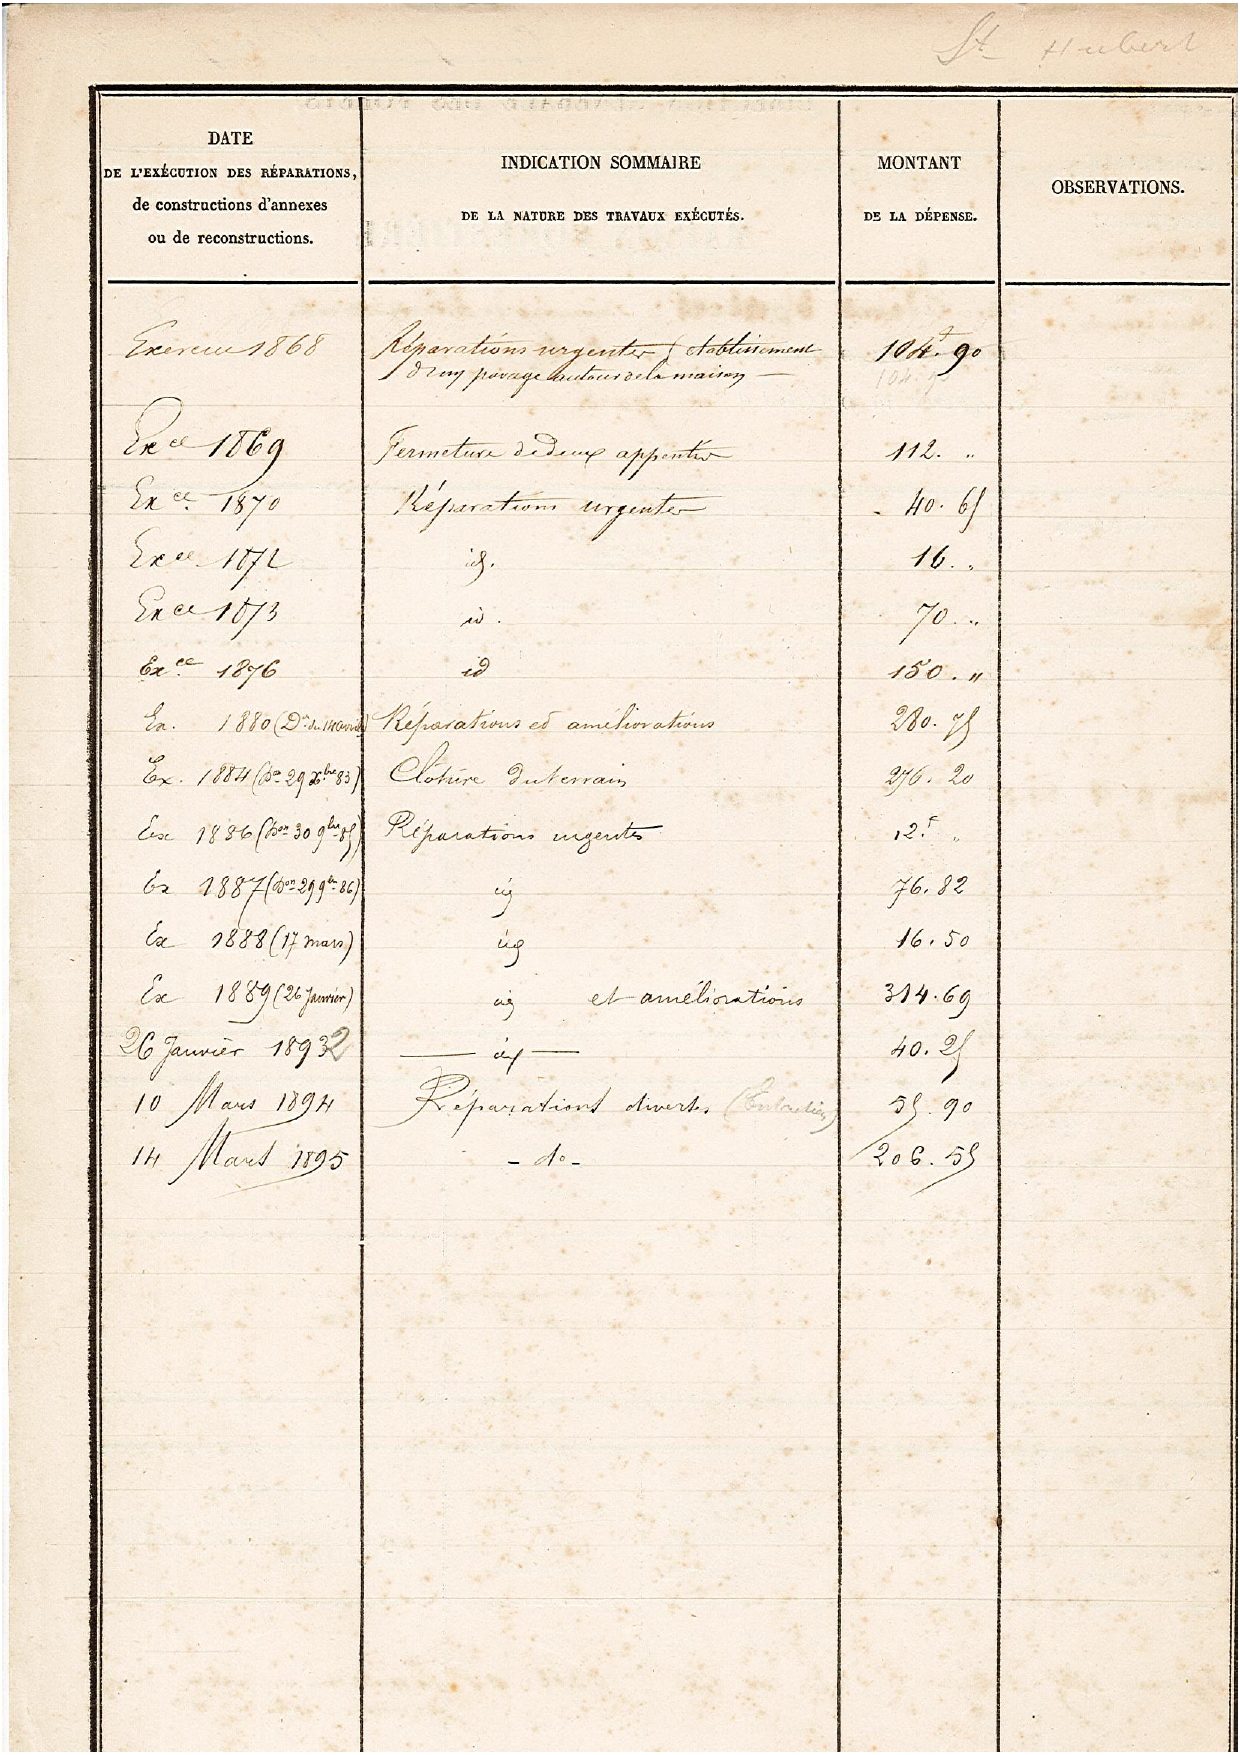 St Hubert
DATE
DE L'EXÉCUTION DES RÉPARATIONS,
de constructions d'annexes
ou de reconstructions.
INDICATION SOMMAIRE
DE LA NATURE DES TRAVAUX EXÉCUTÉS.
MONTANT
DE LA DÉPENSE.
OBSERVATIONS.
Exercice 1868 Réparations urgentes; établissement 104.f 90
d'un pavage autour de la maison — 104.90
Exce 1869 Fermeture de deux appentis 112. "
Exce 1870 Réparations urgentes 40. 65
Exce 1872 id. 16. "
Exce 1873 id. 70. "
Exce 1876 id 150. "
Ex. 1880 (Don du 14 avril) Réparations et améliorations 280. 75
Ex. 1884 (Don 29 Xbre 83) Clôture du terrain 276. 20
Ex 1886 (Don 30 9bre 85) Réparations urgentes 12.f "
Ex 1887 (Don 29 9bre 86) id 76. 82
Ex 1888 (17 mars) id 16. 50
Ex 1889 (26 Janvier) id et améliorations 314. 69
26 Janvier 1892 — id — 40. 25
10 Mars 1894 Réparations diverses (Entretien) 55. 90
14 Mars 1895 - do - 206. 55